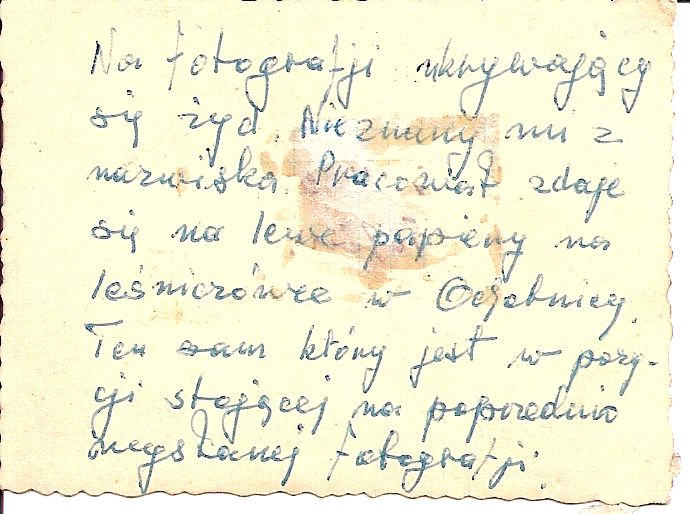 Na fotografji ukrywający
się żyd. Nieznany mi z
nazwiska Pracował zdaje
się na lewe papiery na
leśniczówce w
Ten sam który jest w pozy-
cji stojącej na poprzednio
fotografji.